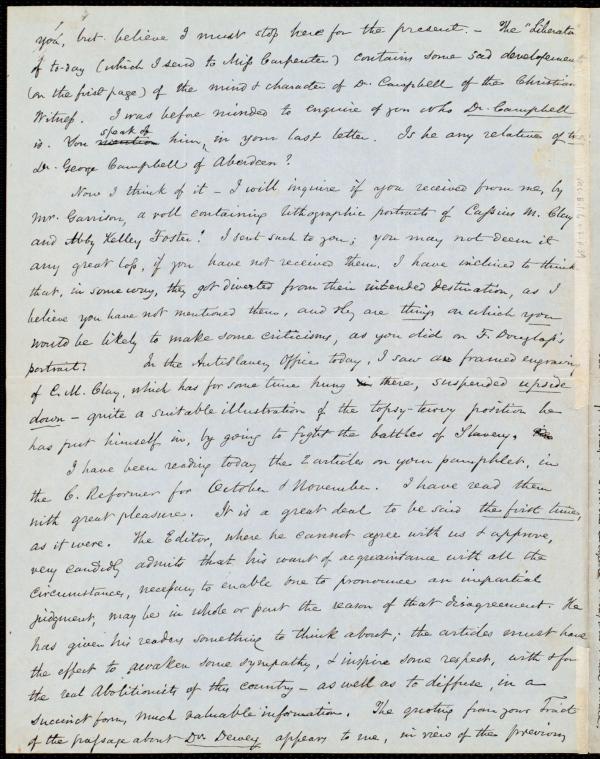 you, but believe I must stop here for the present. - The "Liberator"
of to-day (which I send to Miss Carpenter) contains some sad developement
(on the first page) of the mind & character of Dr. Campbell of the Christian
Witness. I was before minded to enquire of you who Dr. Campbell
is. You mention speak of him, in your last letter. Is he any relative of
Dr. George Campbell of Aberdeen?
Now I think of it - I will inquire if you received from me, by
Mr. Garrison, a roll containing lithographic portraits of Cassius M. Clay
and Abby Kelley Foster? I sent such to you; you may not deem it
any great loss, if you have not received them. I have inclined to think
that, in some way, they got diverted from their intended destination, as I
believe you have not mentioned them, and they are things on which you
would be likely to make some criticisms, as you did on F. Douglass's
portrait. In the AntiSlavery Office today, I saw a framed engraving
of C. M. Clay, which has for some time hung there, suspended upside
down - quite a suitable illustration of the topsy-turvy position he
has put himself in, by going to fight the battles of Slavery.
I have been reading today the 2 articles on your pamphlet, in
the C. Reformer for October & November. I have read them
with great pleasure. It is a great deal to be said the first time,
as it were. The Editor, where he cannot agree with us & approve,
very candidly admits that his want of acquaintance with all the
circumstances, necessary to enable one to pronounce an impartial
judgment, may be in whole or part the reason of that disagreement. He
has given his readers something to think about; the articles must have
the effect to awaken some sympathy, & inspire some respect, with & for
the real Abolitionists of this country - as well as to diffuse, in a
succinct form, much valuable information. The quoting from your Tract
of the passage about Dr. Dewey appears to me, in view of the previous